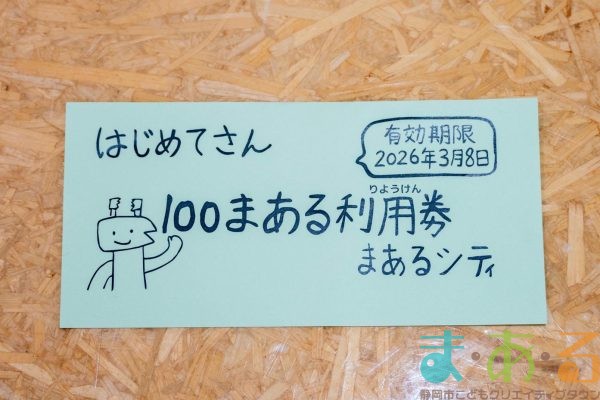 はじめてさん
有効期限
2026年3月8日
りようけん
100まある利用券
まあるシティ
ま・あ・る
静岡市こどもクリエイティブタウン